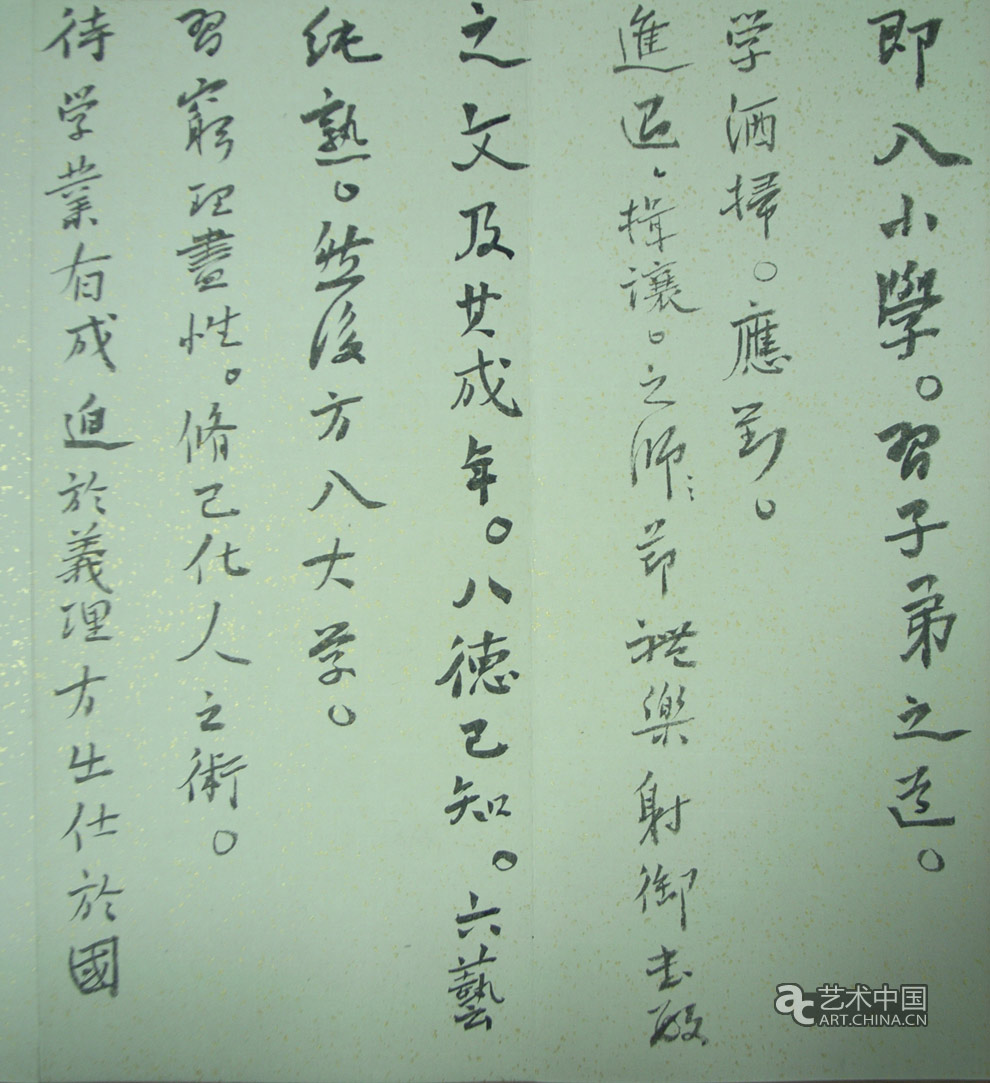 即入小學。習子弟之道。
学洒掃。應對。
進退、揖讓。之師〻节禮樂射御书
之文及其成年。八德已知。六藝
純熟。然後方入大学。
習窮理盡性。脩己化人之術。
待学業有成迫於義理方出仕於國
艺术中国
ART.CHINA.CN